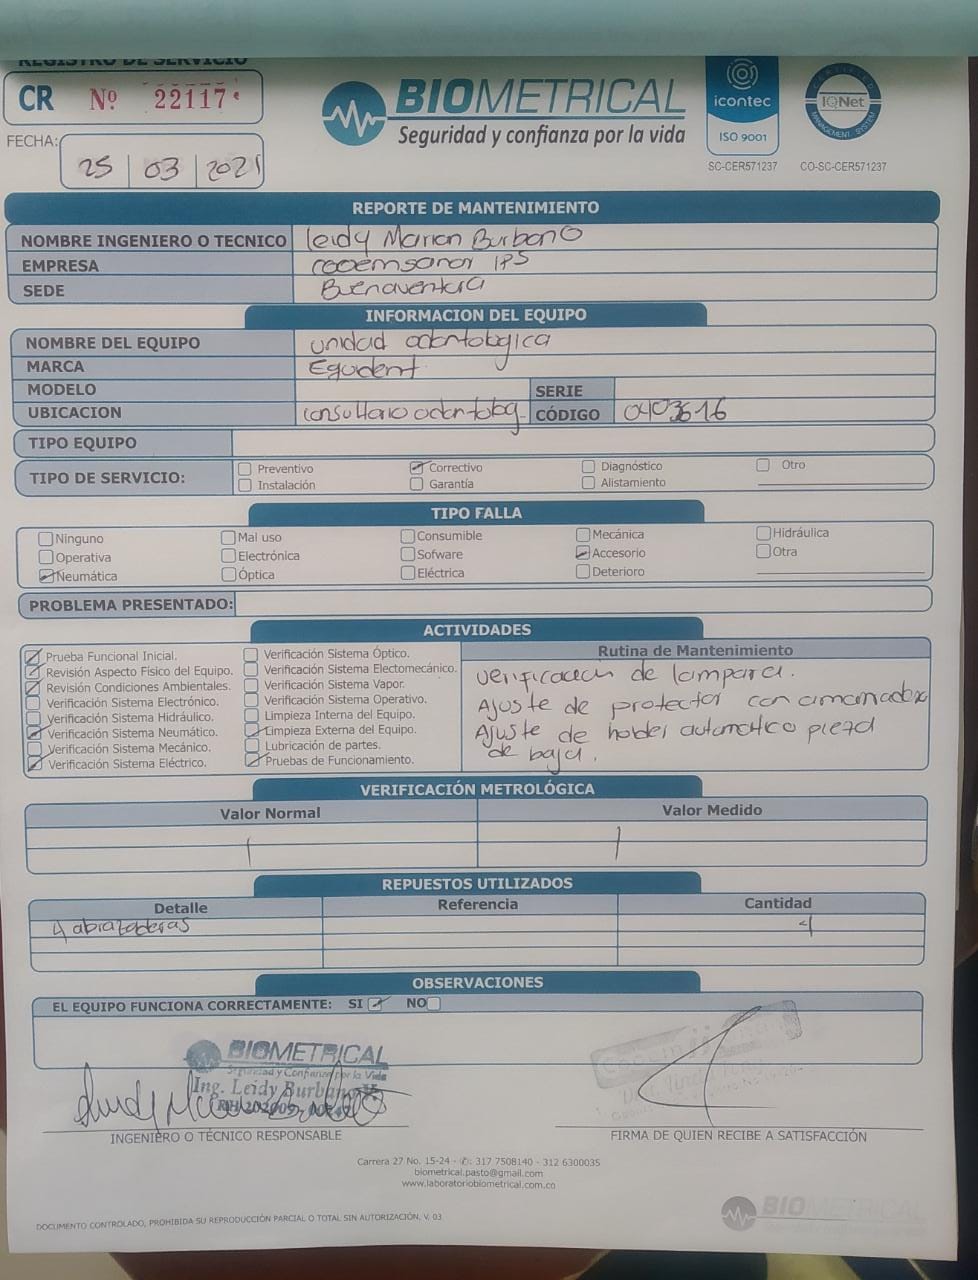 REGISTRO DE SERVICIO
CR Nº 22117
FECHA: 25 03 2021
BIOMETRICAL
Seguridad y confianza por la vida
icontec
ISO 9001
SC-CER571237
CERTIFIED
IQNet
MANAGEMENT SYSTEM
CO-SC-CER571237
REPORTE DE MANTENIMIENTO
NOMBRE INGENIERO O TECNICO Leidy Marian Burbano
EMPRESA cooemsanar IPS
SEDE Buenaventura
INFORMACION DEL EQUIPO
NOMBRE DEL EQUIPO unidad odontologica
MARCA Egudent
MODELO SERIE
UBICACION consultorio odontolog. CÓDIGO 0403616
TIPO EQUIPO
TIPO DE SERVICIO:
Preventivo Correctivo Diagnóstico Otro
Instalación Garantía Alistamiento
TIPO FALLA
Ninguno Mal uso Consumible Mecánica Hidráulica
Operativa Electrónica Sofware Accesorio Otra
Neumática Óptica Eléctrica Deterioro
PROBLEMA PRESENTADO:
ACTIVIDADES
Prueba Funcional Inicial.
Revisión Aspecto Físico del Equipo.
Revisión Condiciones Ambientales.
Verificación Sistema Electrónico.
Verificación Sistema Hidráulico.
Verificación Sistema Neumático.
Verificación Sistema Mecánico.
Verificación Sistema Eléctrico.
Verificación Sistema Óptico.
Verificación Sistema Electomecánico.
Verificación Sistema Vapor.
Verificación Sistema Operativo.
Limpieza Interna del Equipo.
Limpieza Externa del Equipo.
Lubricación de partes.
Pruebas de Funcionamiento.
Rutina de Mantenimiento
verificacion de lampara.
Ajuste de protector con amarradera
Ajuste de holder automotico pieza
de baja.
VERIFICACIÓN METROLÓGICA
Valor Normal Valor Medido
REPUESTOS UTILIZADOS
Detalle Referencia Cantidad
4 abrazaderas 4
OBSERVACIONES
EL EQUIPO FUNCIONA CORRECTAMENTE: SI NO
BIOMETRICAL
Seguridad y Confianza por la Vida
Ing. Leidy Burbano
INGENIERO O TÉCNICO RESPONSABLE
FIRMA DE QUIEN RECIBE A SATISFACCIÓN
Carrera 27 No. 15-24 - ✆: 317 7508140 - 312 6300035
biometrical.pasto@gmail.com
www.laboratoriobiometrical.com.co
DOCUMENTO CONTROLADO, PROHIBIDA SU REPRODUCCIÓN PARCIAL O TOTAL SIN AUTORIZACIÓN, V. 03
BIOMETRICAL